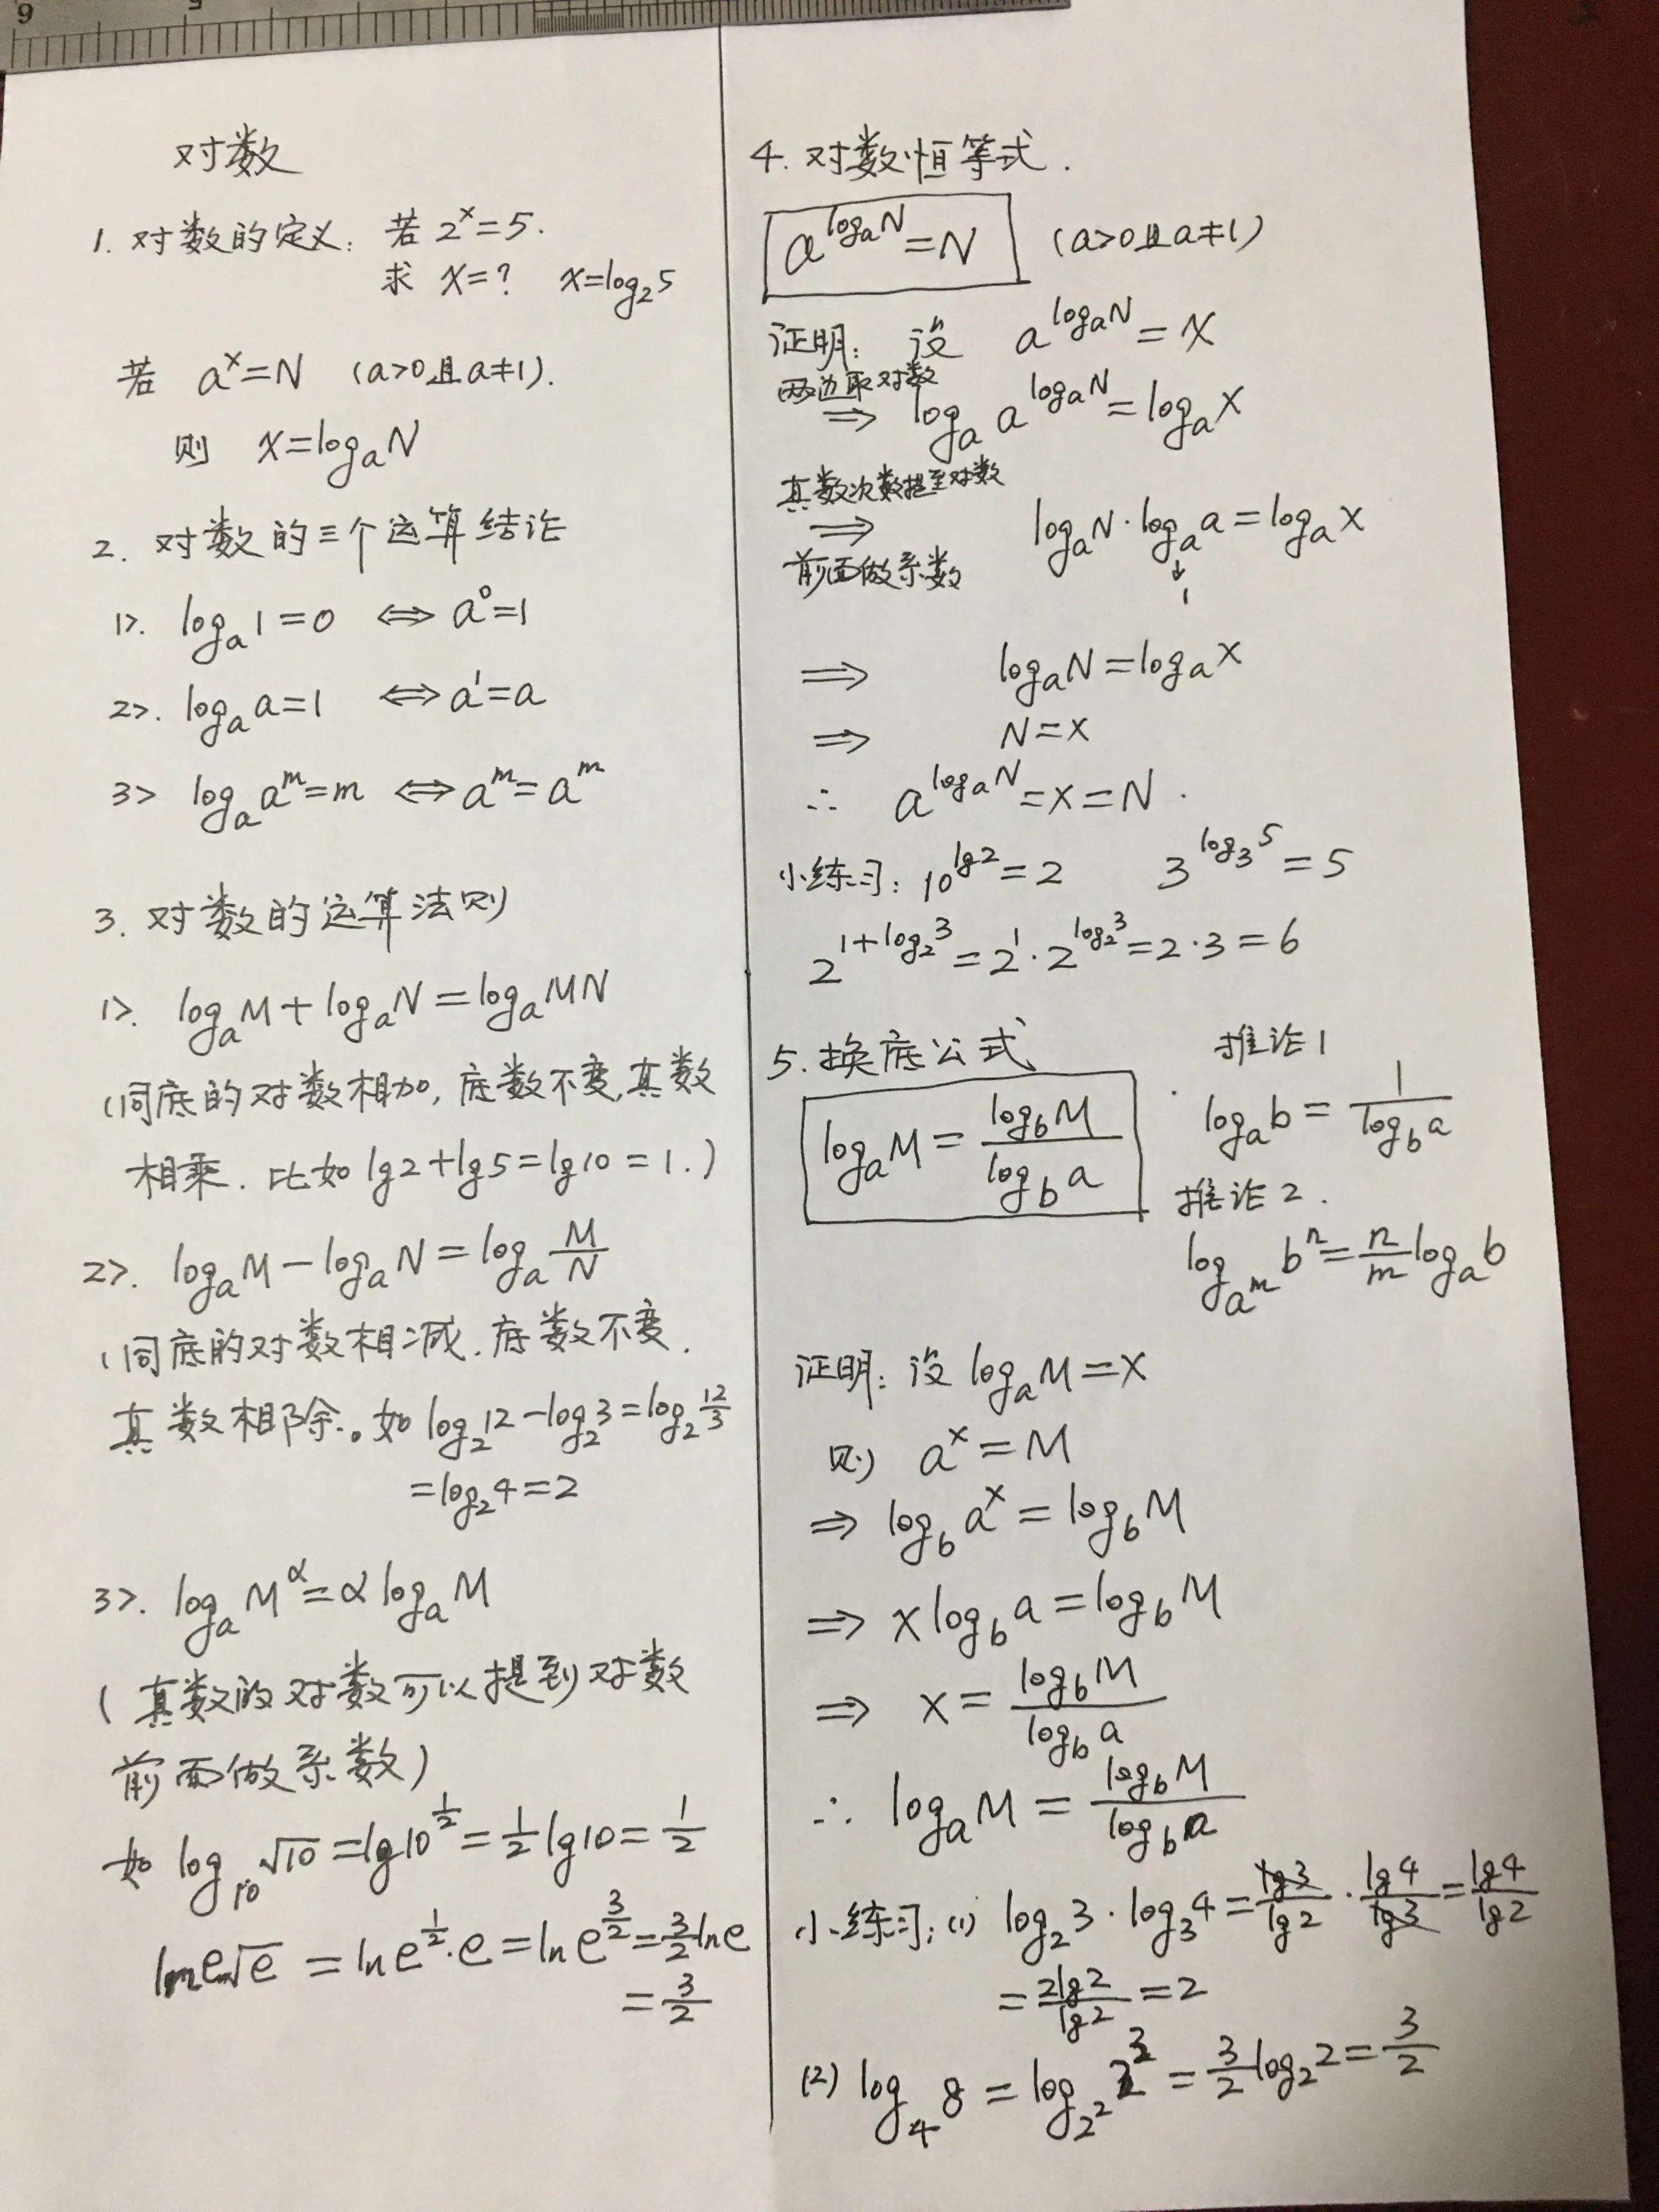 6 5
对数
1. 对数的定义: 若 2^x=5.
求 x=? x=log_2 5
若 a^x=N (a>0且a≠1).
则 x=log_a N
2. 对数的三个运算结论
1>. log_a 1=0 ⟺ a^0=1
2>. log_a a=1 ⟺ a^1=a
3> log_a a^m=m ⟺ a^m=a^m
3. 对数的运算法则
1>. log_a M+log_a N=log_a MN
(同底的对数相加, 底数不变,真数
相乘. 比如 lg2+lg5=lg10=1.)
2>. log_a M-log_a N=log_a M/N
(同底的对数相减. 底数不变.
真数相除.。如 log_2 12-log_2 3=log_2 12/3
=log_2 4=2
3>. log_a M^α=α log_a M
(真数的对数可以提到对数
前面做系数)
如 log_10 √10=lg10^(1/2)=1/2 lg10=1/2
lne√e=lne^(1/2)·e=lne^(3/2)=3/2 lne
=3/2
4. 对数恒等式.
a^(log_a N)=N (a>0且a≠1)
证明: 设 a^(log_a N)=x
两边取对数
⟹ log_a a^(log_a N)=log_a x
真数次数提至对数
⟹ log_a N·log_a a=log_a x
前面做系数 ↓
1
⟹ log_a N=log_a x
⟹ N=x
∴ a^(log_a N)=x=N.
小练习: 10^(lg2)=2 3^(log_3 5)=5
2^(1+log_2 3)=2^1·2^(log_2 3)=2·3=6
5. 换底公式
log_a M=log_b M/log_b a
推论1
log_a b=1/log_b a
推论2.
log_(a^m) b^n=n/m log_a b
证明: 设 log_a M=x
则 a^x=M
⟹ log_b a^x=log_b M
⟹ x log_b a=log_b M
⟹ x=log_b M/log_b a
∴ log_a M=log_b M/log_b a
小练习: (1) log_2 3·log_3 4=lg3/lg2·lg4/lg3=lg4/lg2
=2lg2/lg2=2
(2) log_4 8=log_(2^2) 2^3=3/2 log_2 2=3/2